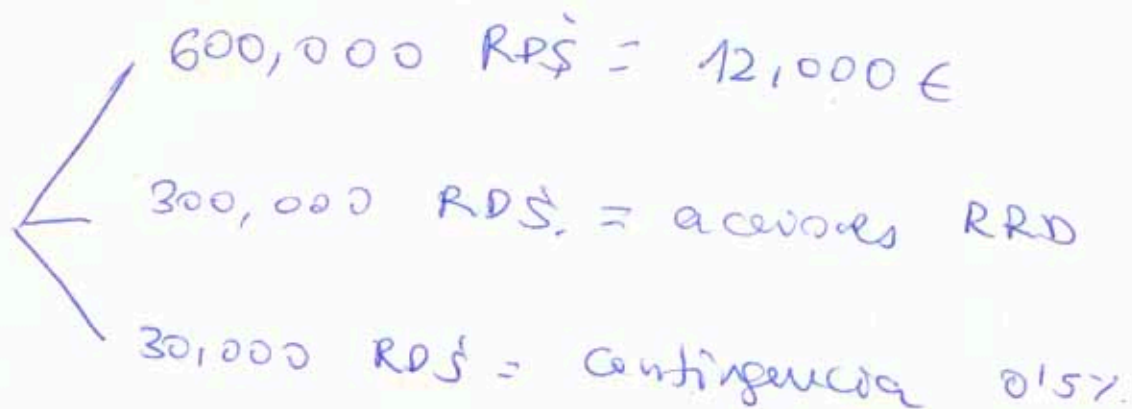 600,000 RD$ = 12,000 €
300,000 RD$. = acciones RRD
30,000 RD$ = Contingencia 0'5%.